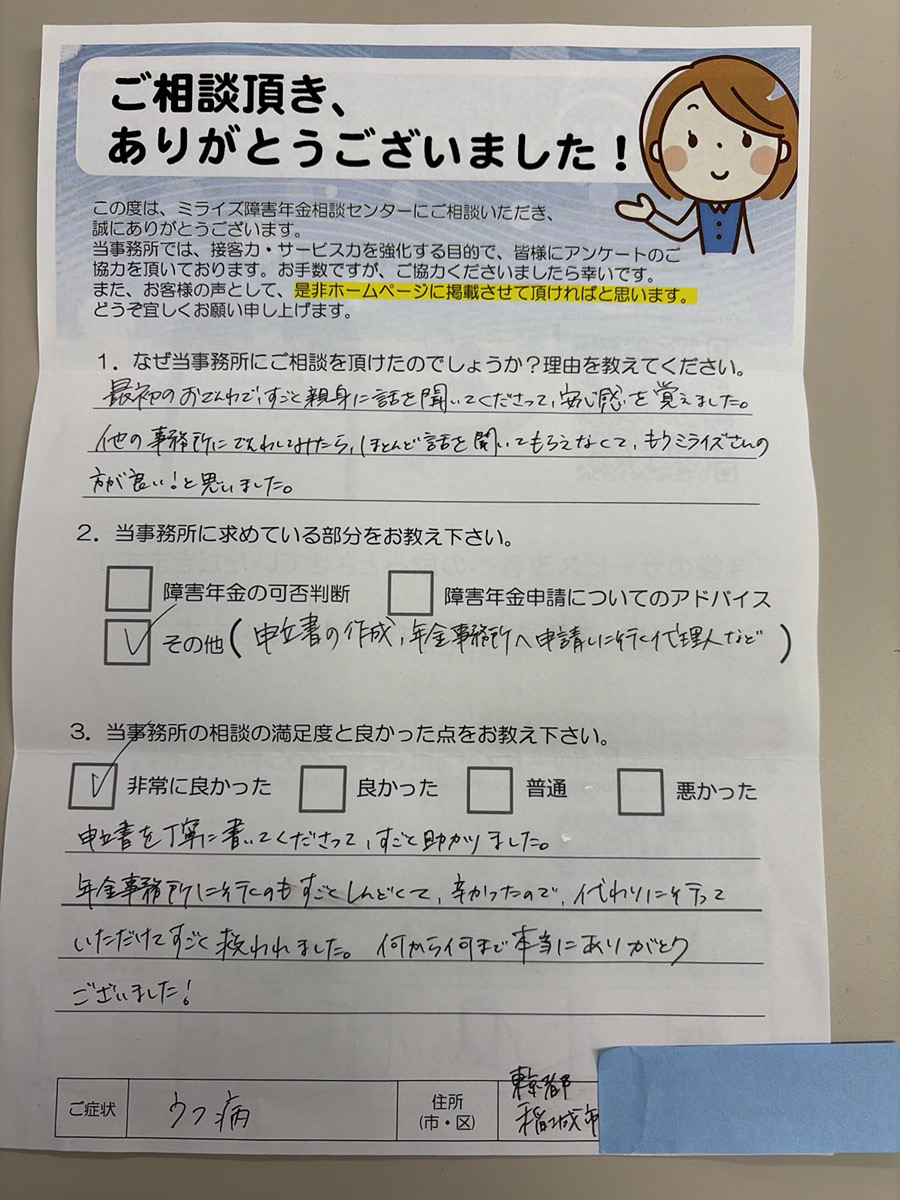 ご相談頂き、
ありがとうございました！
この度は、ミライズ障害年金相談センターにご相談いただき、
誠にありがとうございます。
当事務所では、接客力・サービス力を強化する目的で、皆様にアンケートのご
協力を頂いております。お手数ですが、ご協力くださいましたら幸いです。
また、お客様の声として、是非ホームページに掲載させて頂ければと思います。
どうぞ宜しくお願い申し上げます。
1．なぜ当事務所にご相談を頂けたのでしょうか？理由を教えてください。
最初のおでんわで、すごく親身に話を聞いてくださって、安心感を覚えました。
他の事務所にでんわしてみたら、ほとんど話を聞いてもらえなくて、もうミライズさんの
方が良い！と思いました。
2．当事務所に求めている部分をお教え下さい。
障害年金の可否判断 障害年金申請についてのアドバイス
その他(申立書の作成、年金事務所へ申請しに行く代理人など)
3．当事務所の相談の満足度と良かった点をお教え下さい。
非常に良かった 良かった 普通 悪かった
申立書を丁寧に書いてくださって、すごく助かりました。
年金事務所に行くのもすごくしんどくて、辛かったので、代わりに行って
いただけてすごく救われました。何から何まで本当にありがとう
ございました！
ご症状 うつ病 住所（市・区） 東京都
稲城市